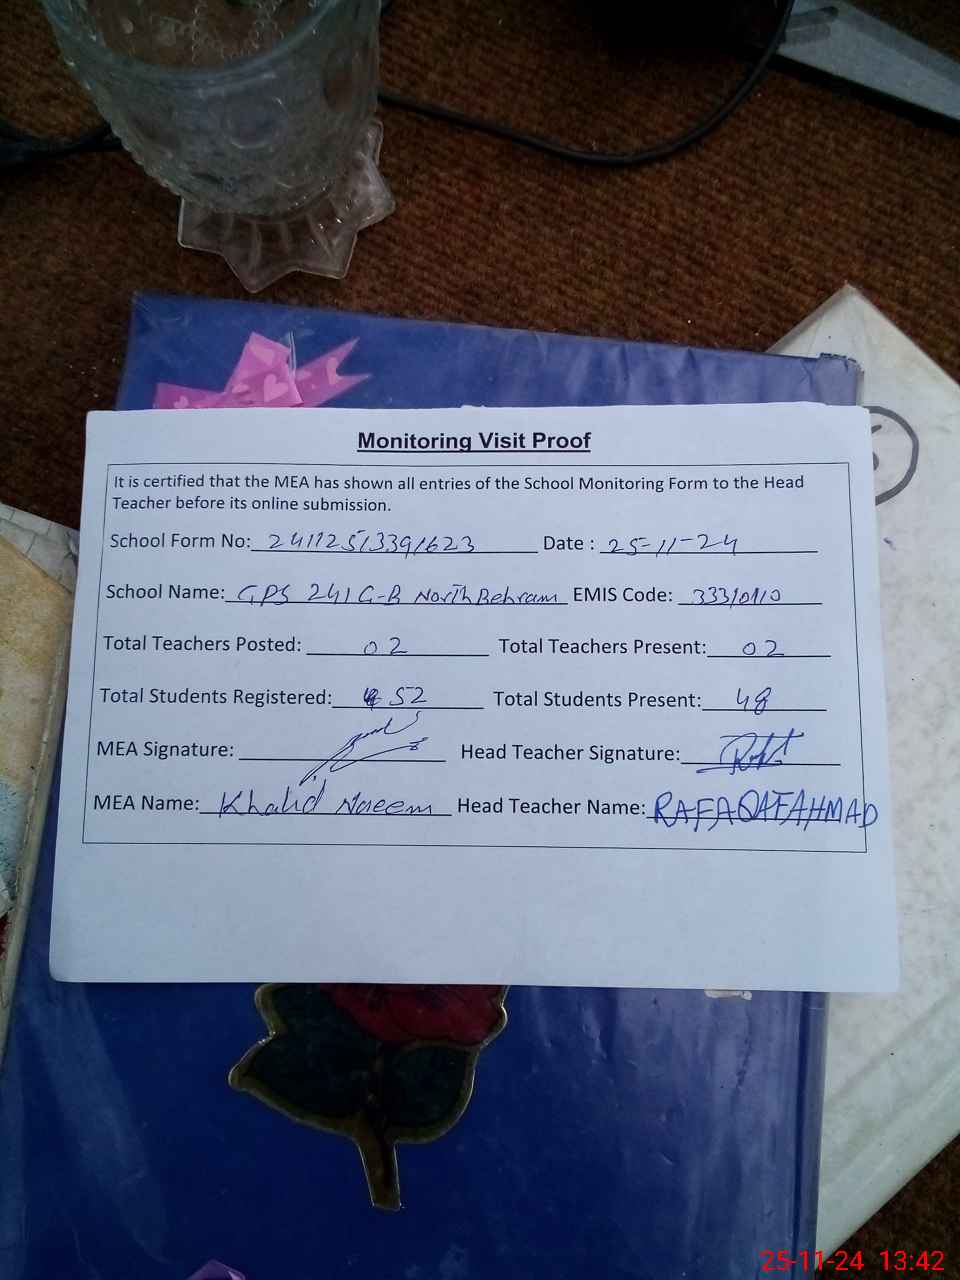 Monitoring Visit Proof
It is certified that the MEA has shown all entries of the School Monitoring Form to the Head
Teacher before its online submission.
School Form No: 24112513391623 Date : 25-11-24
School Name: GPS 241 G-B North Behram EMIS Code: 33310110
Total Teachers Posted: 02 Total Teachers Present: 02
Total Students Registered: 52 Total Students Present: 48
MEA Signature: Head Teacher Signature:
MEA Name: Khalid Naeem Head Teacher Name: RAFAQAT AHMAD
25-11-24 13:42